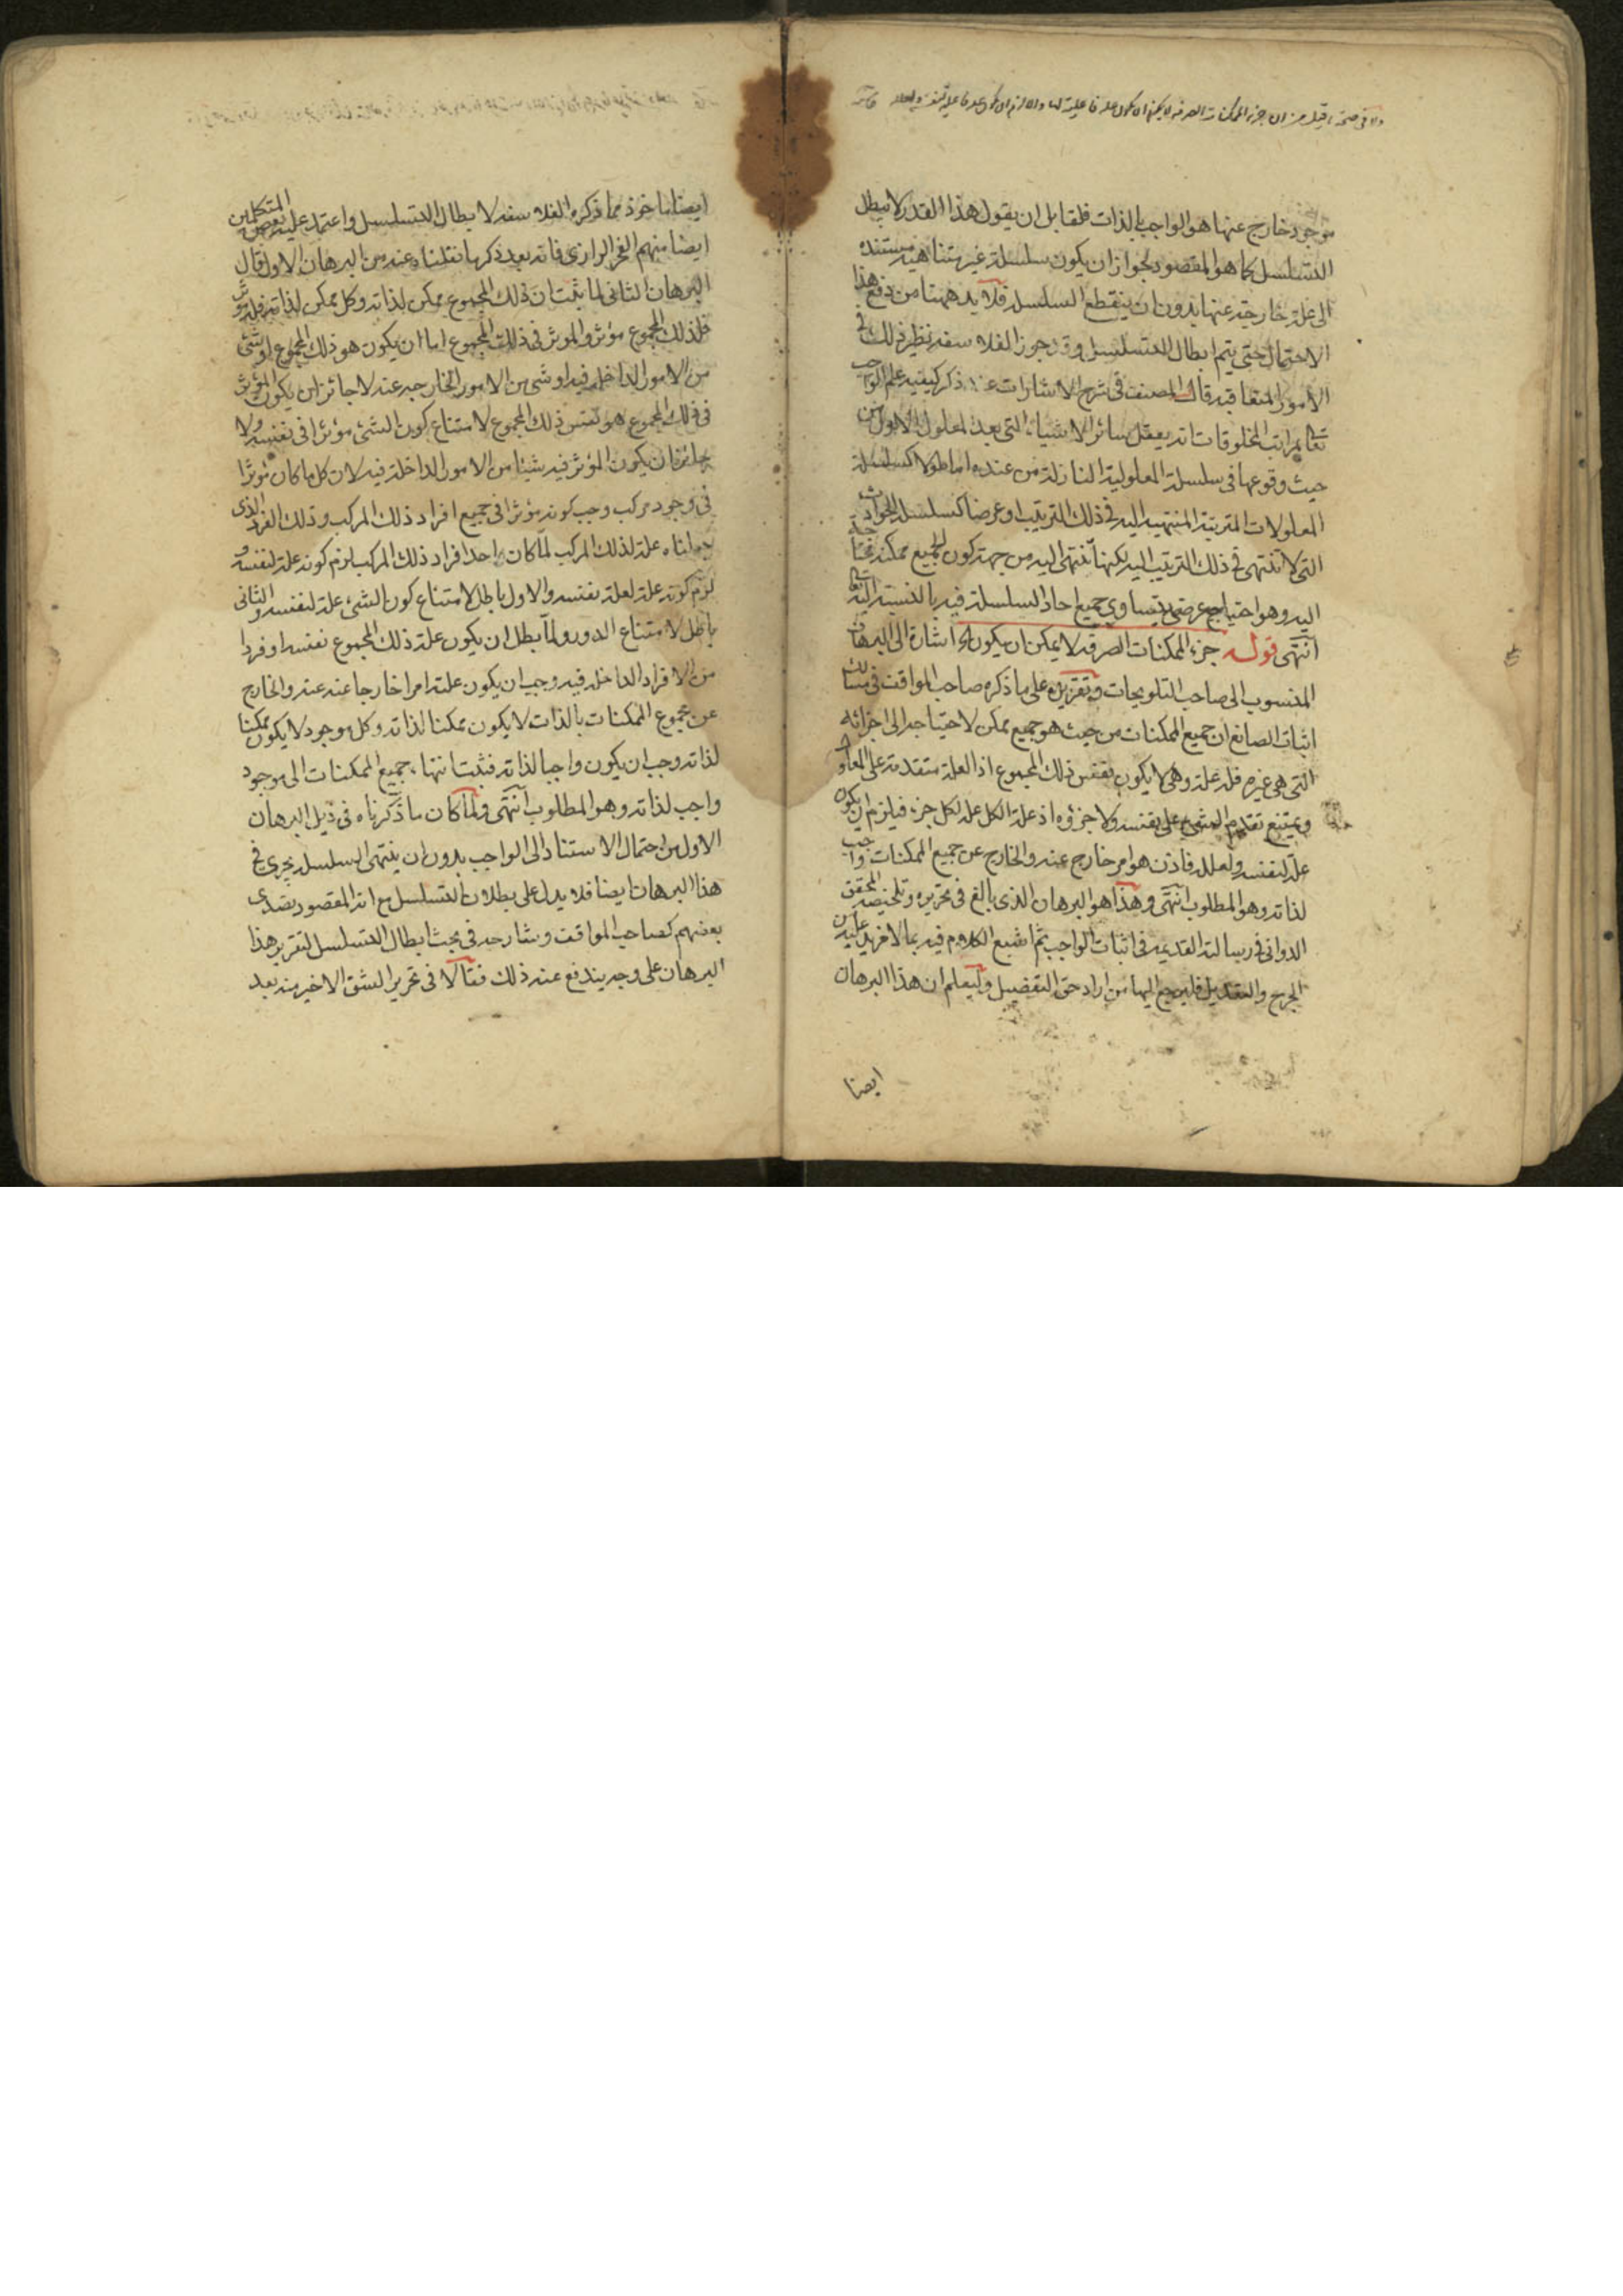 موجود خارج عنها هو الواجب بالذات فلقابل ان يقول هذا القدر لا يبطل
التسلسل كما هو المقصود لجواز ان يكون سلسلة غير متناهية مستنده
الى علة خارجة عنها بدون ان ينقطع السلسلة فلا بد ههنا من دفع هذا
الاحتمال حتى يتم ابطال التسلسل وقد جوز الفلاسفه نظير ذلك في
الامور المتعاقبه قال المصنف في شرح الاشارات عند ذكر كيفيه علم الواجب
تعالى بمراتب المخلوقات انه يعقل سائر الاشياء التى بعد المعلول الاول من
حيث وقوعها فى سلسلة المعلولية النازلة من عنده اما طولا كسلسلة
المعلولات المترتبة المنتهيه اليه في ذلك الترتيب او عرضا كسلسلة الحوادث
التي لا تنتهى في ذلك الترتيب اليه لكنها تنتهى اليه من جهة كون الجميع ممكنه محتاجة
اليه وهو احتياج عرضى يتساوي جميع احاد السلسلة فيه بالنسبه اليه تعالى
انتهى قوله جزء الممكنات الصرفه لا يمكن ان يكون اه اشارة الى البرهان
المنسوب الى صاحب التلويحات وتقريره على ما ذكره صاحب المواقف فى مسالك
اثبات الصانع ان جميع الممكنات من حيث هو جميع ممكن لاحتياجه الى اجزائه
التى هى غيره فله علة وهى لا يكون نفس ذلك المجموع اذ العلة متقدمة على المعلول
ويمتنع تقدم الشيء على نفسه ولا جزؤه اذ علة الكل علة لكل جزء فيلزم ان يكون
علة لنفسه ولعلله فاذن هو امر خارج عنه والخارج عن جميع الممكنات واجب
لذاته وهو المطلوب انتهى وهذا هو البرهان الذى بالغ فى تحريره وتلخيصه المحقق
الدوانى في رسالته القديمه فى اثبات الواجب ثم اشبع الكلام فيه بما لا مزيد عليه من
الجرح والتعديل فليرجع اليها من اراد حق التفصيل وليعلم ان هذا البرهان
ايضا
ايضا ماخوذ مما ذكره الفلاسفه لابطال التسلسل واعتمد عليه بعض المتكلمين
ايضا منهم الفخر الرازى فانه بعد ذكر ما نقلناه عنه من البرهان الاول قال
البرهان الثانى لما ثبت ان ذلك المجموع ممكن لذاته وكل ممكن لذاته فله مؤثر
فلذلك المجموع مؤثر والموثر فى ذلك المجموع اما ان يكون هو ذلك المجموع او شئ
من الامور الداخلة فيه او شى من الامور الخارجيه عنه لا جائز ان يكون المؤثر
فى ذلك المجموع هو نفس ذلك المجموع لامتناع كون الشئ مؤثرا فى نفسه ولا
جائز ان يكون المؤثر فيه شيئا من الامور الداخلة فيه لان كل ما كان مؤثرا
فى وجود مركب وجب كونه مؤثرا فى جميع افراد ذلك المركب وذلك الفرد الذى
جعلناه علة لذلك المركب لما كان احد افراد ذلك المركب لزم كونه علة لنفسه و
لزم كونه علة لعلة نفسه والاول باطل لامتناع كون الشئ علة لنفسه والثانى
باطل لامتناع الدور ولما بطل ان يكون علة ذلك المجموع نفسه او فردا
من الافراد الداخله فيه وجب ان يكون علته امرا خارجا عنه والخارج
عن مجموع الممكنات بالذات لا يكون ممكنا لذاته وكل موجود لا يكون ممكنا
لذاته وجب ان يكون واجبا لذاته فثبت انتهاء جميع الممكنات الى موجود
واجب لذاته وهو المطلوب انتهى ولما كان ما ذكرناه فى ذيل البرهان
الاول من احتمال الاستناد الى الواجب بدون ان ينتهى السلسلة يجري في
هذا البرهان ايضا فلا يدل على بطلان التسلسل مع انه المقصود تصدى
بعضهم كصاحب المواقف وشارحه فى بحث ابطال التسلسل لتقرير هذا
البرهان على وجه يندفع عنه ذلك فقالا فى تحرير الشق الاخير منه بعد